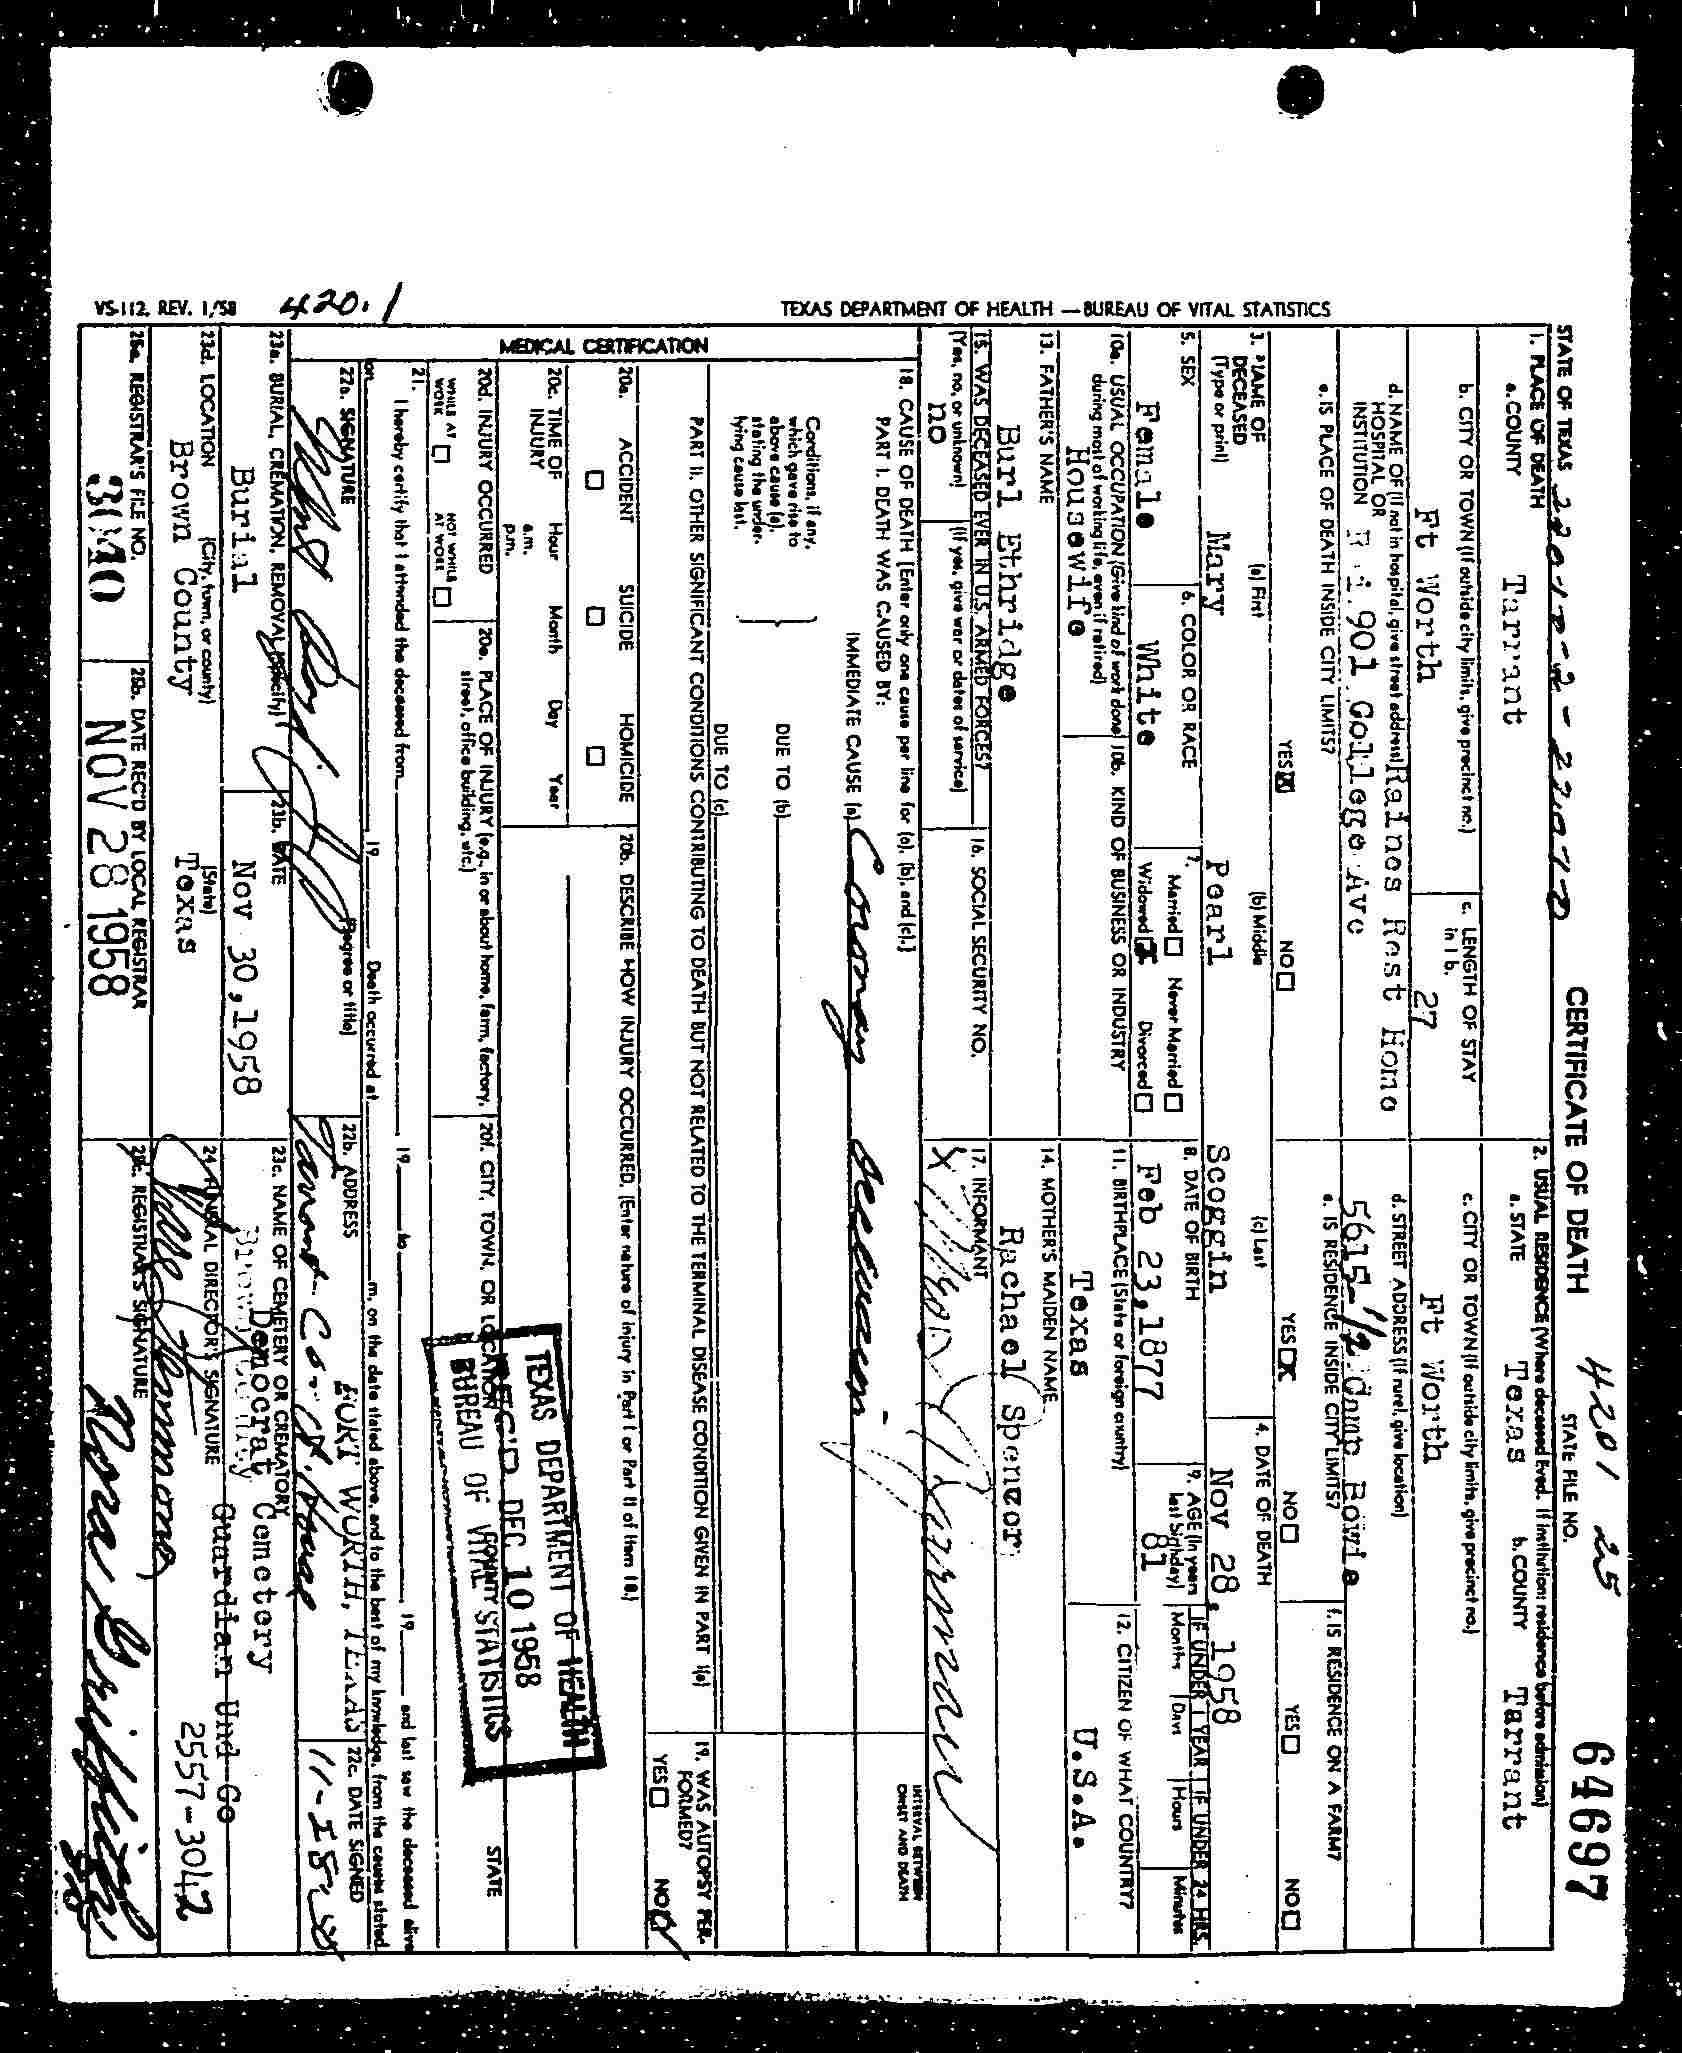 TEXAS DEPARTMENT OF HEALTH — BUREAU OF VITAL STATISTICS
VS-112, REV. 1/58
420.1
4201 25
STATE OF TEXAS
CERTIFICATE OF DEATH
STATE FILE NO.
64697
1. PLACE OF DEATH
a. COUNTY Tarrant
2. USUAL RESIDENCE (Where deceased lived. If institution: residence before admission)
a. STATE Texas
b. COUNTY Tarrant
b. CITY OR TOWN (If outside city limits, give precinct no.)
Ft Worth
c. LENGTH OF STAY
in 1 b.
27
c. CITY OR TOWN (If outside city limits, give precinct no.)
Ft Worth
d. NAME OF (If not in hospital, give street address)
HOSPITAL OR
INSTITUTION
Raines Rest Home
901 College Ave
d. STREET ADDRESS (If rural, give location)
5615-1/2 Camp Bowie
e. IS PLACE OF DEATH INSIDE CITY LIMITS?
YES X NO
e. IS RESIDENCE INSIDE CITY LIMITS?
YES X NO
f. IS RESIDENCE ON A FARM?
YES NO
3. NAME OF
DECEASED
(Type or print)
(a) First
Mary
(b) Middle
Pearl
(c) Last
Scoggin
4. DATE OF DEATH
Nov 28, 1958
5. SEX
Female
6. COLOR OR RACE
White
7.
Married Never Married
Widowed X Divorced
8. DATE OF BIRTH
Feb 23,1877
9. AGE (In years
last birthday)
81
IF UNDER 1 YEAR
Months Days
IF UNDER 24 HRS.
Hours Minutes
10a. USUAL OCCUPATION (Give kind of work done
during most of working life, even if retired)
Housewife
10b. KIND OF BUSINESS OR INDUSTRY
11. BIRTHPLACE (State or foreign country)
Texas
12. CITIZEN OF WHAT COUNTRY?
U.S.A.
13. FATHER'S NAME
Burl Ethridge
14. MOTHER'S MAIDEN NAME
Rachael Spencer
15. WAS DECEASED EVER IN U.S. ARMED FORCES?
(Yes, no, or unknown) (If yes, give war or dates of service)
no
16. SOCIAL SECURITY NO.
17. INFORMANT
X
MEDICAL CERTIFICATION
18. CAUSE OF DEATH [Enter only one cause per line for (a), (b), and (c).]
PART I. DEATH WAS CAUSED BY:
IMMEDIATE CAUSE (a) Coronary Occlusion
INTERVAL BETWEEN
ONSET AND DEATH
Conditions, if any,
which gave rise to
above cause (a),
stating the under-
lying cause last.
DUE TO (b)
DUE TO (c)
PART II. OTHER SIGNIFICANT CONDITIONS CONTRIBUTING TO DEATH BUT NOT RELATED TO THE TERMINAL DISEASE CONDITION GIVEN IN PART I(a)
19. WAS AUTOPSY PER-
FORMED?
YES NO
20a. ACCIDENT SUICIDE HOMICIDE
20b. DESCRIBE HOW INJURY OCCURRED. (Enter nature of injury in Part I or Part II of Item 18.)
20c. TIME OF
INJURY
Hour Month Day Year
a.m.
p.m.
20d. INJURY OCCURRED
WHILE AT
WORK
NOT WHILE
AT WORK
20e. PLACE OF INJURY (e.g., in or about home, farm, factory,
street, office building, etc.)
20f. CITY, TOWN, OR LOCATION
STATE
TEXAS DEPARTMENT OF HEALTH
REC'D DEC 10 1958
BUREAU OF VITAL STATISTICS
21.
I hereby certify that I attended the deceased from 19 to 19 and last saw the deceased alive
on 19 Death occurred at m, on the date stated above, and to the best of my knowledge, from the causes stated.
22a. SIGNATURE
(Degree or title)
22b. ADDRESS
FORT WORTH, TEXAS
22c. DATE SIGNED
23a. BURIAL, CREMATION, REMOVAL (Specify)
Burial
23b. DATE
Nov 30,1958
23c. NAME OF CEMETERY OR CREMATORY
Democrat Cemetery
23d. LOCATION (City, town, or county)
Brown County
(State)
Texas
24. FUNERAL DIRECTOR'S SIGNATURE
Guardian Und Co
2557-3042
25a. REGISTRAR'S FILE NO.
25b. DATE REC'D BY LOCAL REGISTRAR
NOV 28 1958
25c. REGISTRAR'S SIGNATURE